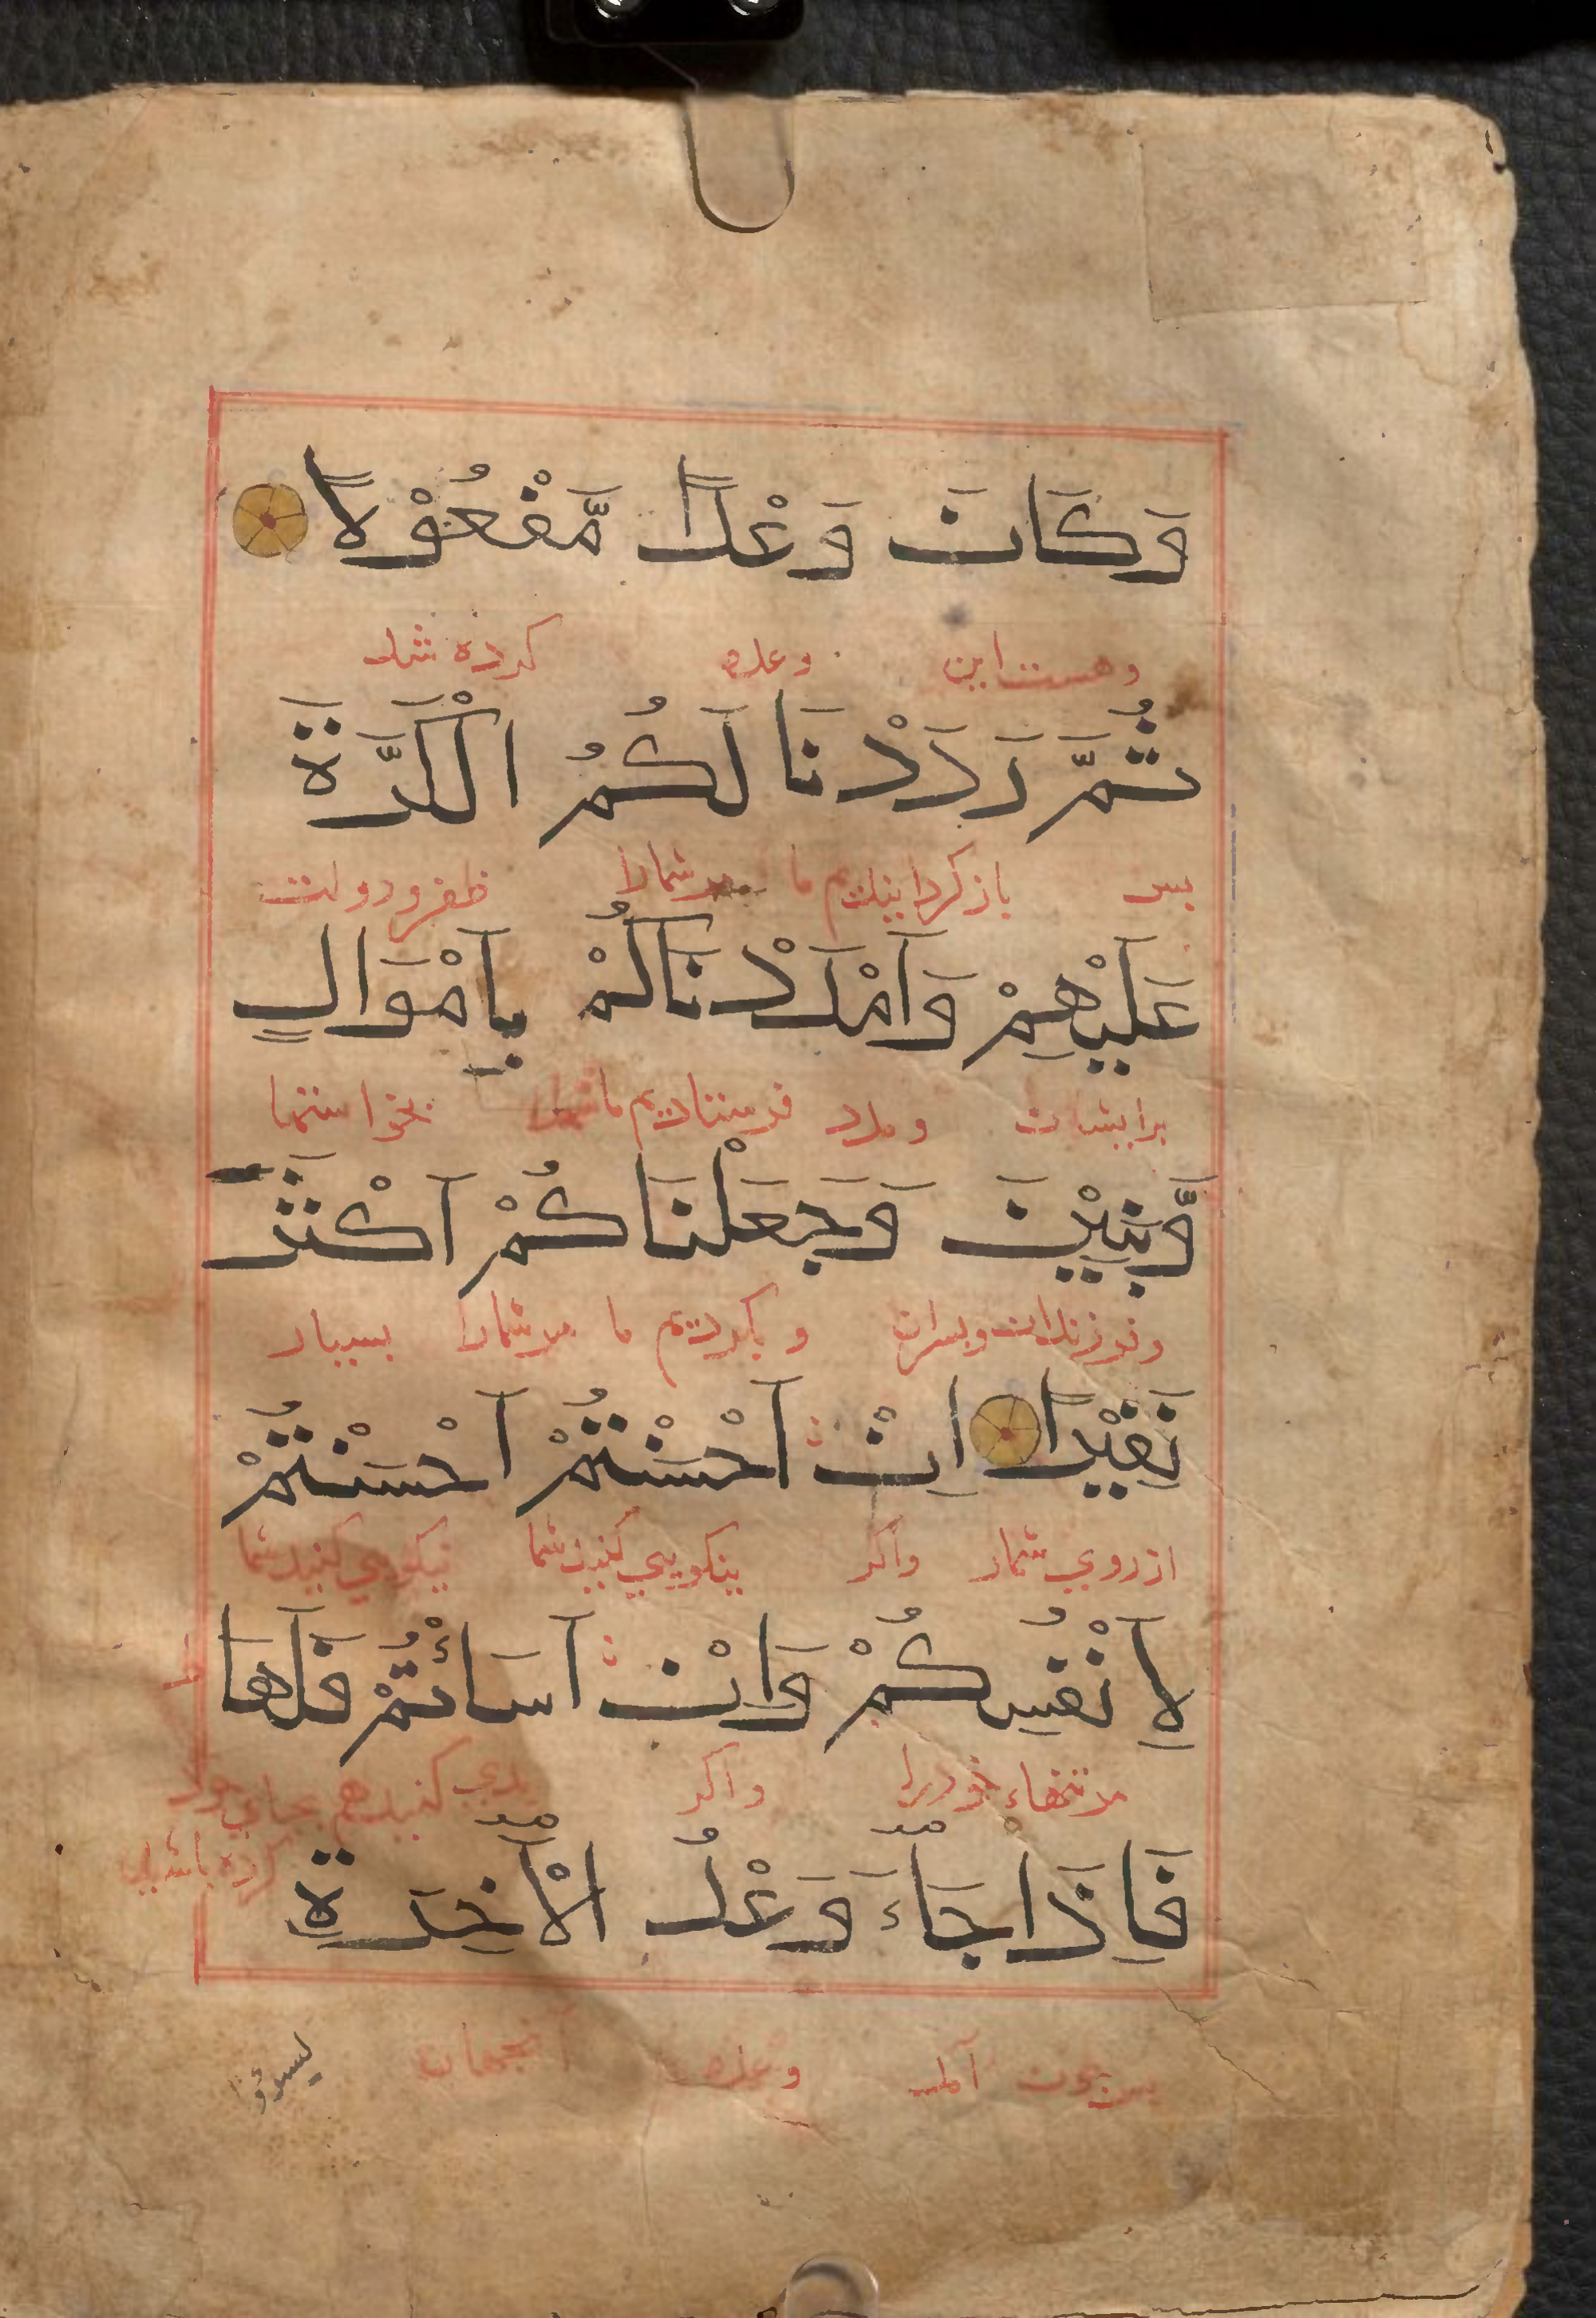 وَكَانَ وَعْدًا مَّفْعُوْلًا
وهست این وعده کرده شد
ثُمَّ رَدَدْنَا لَكُمُ الْكَرَّةَ
پس باز کردانیدیم ما مرشمارا ظفر و دولت
عَلَيْهِمْ وَاَمْدَدْنَاكُمْ بِاَمْوَالٍ
برایشان ومدد فرستادیم ما شمارا بخواستها
وَّبَنِيْنَ وَجَعَلْنَاكُمْ اَكْثَرَ
وفرزندان وپسران وبکردیم ما مرشمارا بسیار
نَفِيْرًا اِنْ اَحْسَنْتُمْ اَحْسَنْتُمْ
ازروی شمار واکر نیکویی کنید شما نیکویی کنید شما
لِاَنْفُسِكُمْ وَاِنْ اَسَاْتُمْ فَلَهَا
مرتنهاء خودرا واکر بدی کنید هم بجای خود
کرده باشید
فَاِذَا جَآءَ وَعْدُ الْاٰخِرَةِ
پس چون آمد وعده آنجهان
ليسوؤا